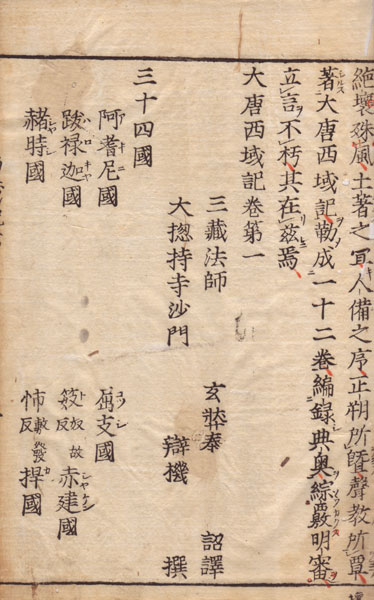 絶壤殊風土著之宜人備之序正朔所曁聲教所覃
著大唐西域記勒成一十二卷編錄典奧綜覈明審
立言不朽其在茲焉
大唐西域記卷第一
三藏法師 玄奘奉 詔譯
大揔持寺沙門 辯機 撰
三十四國
阿耆尼國 屈支國
跋禄迦國 笯奴故反赤建國
赭時國 怖敷發反捍國